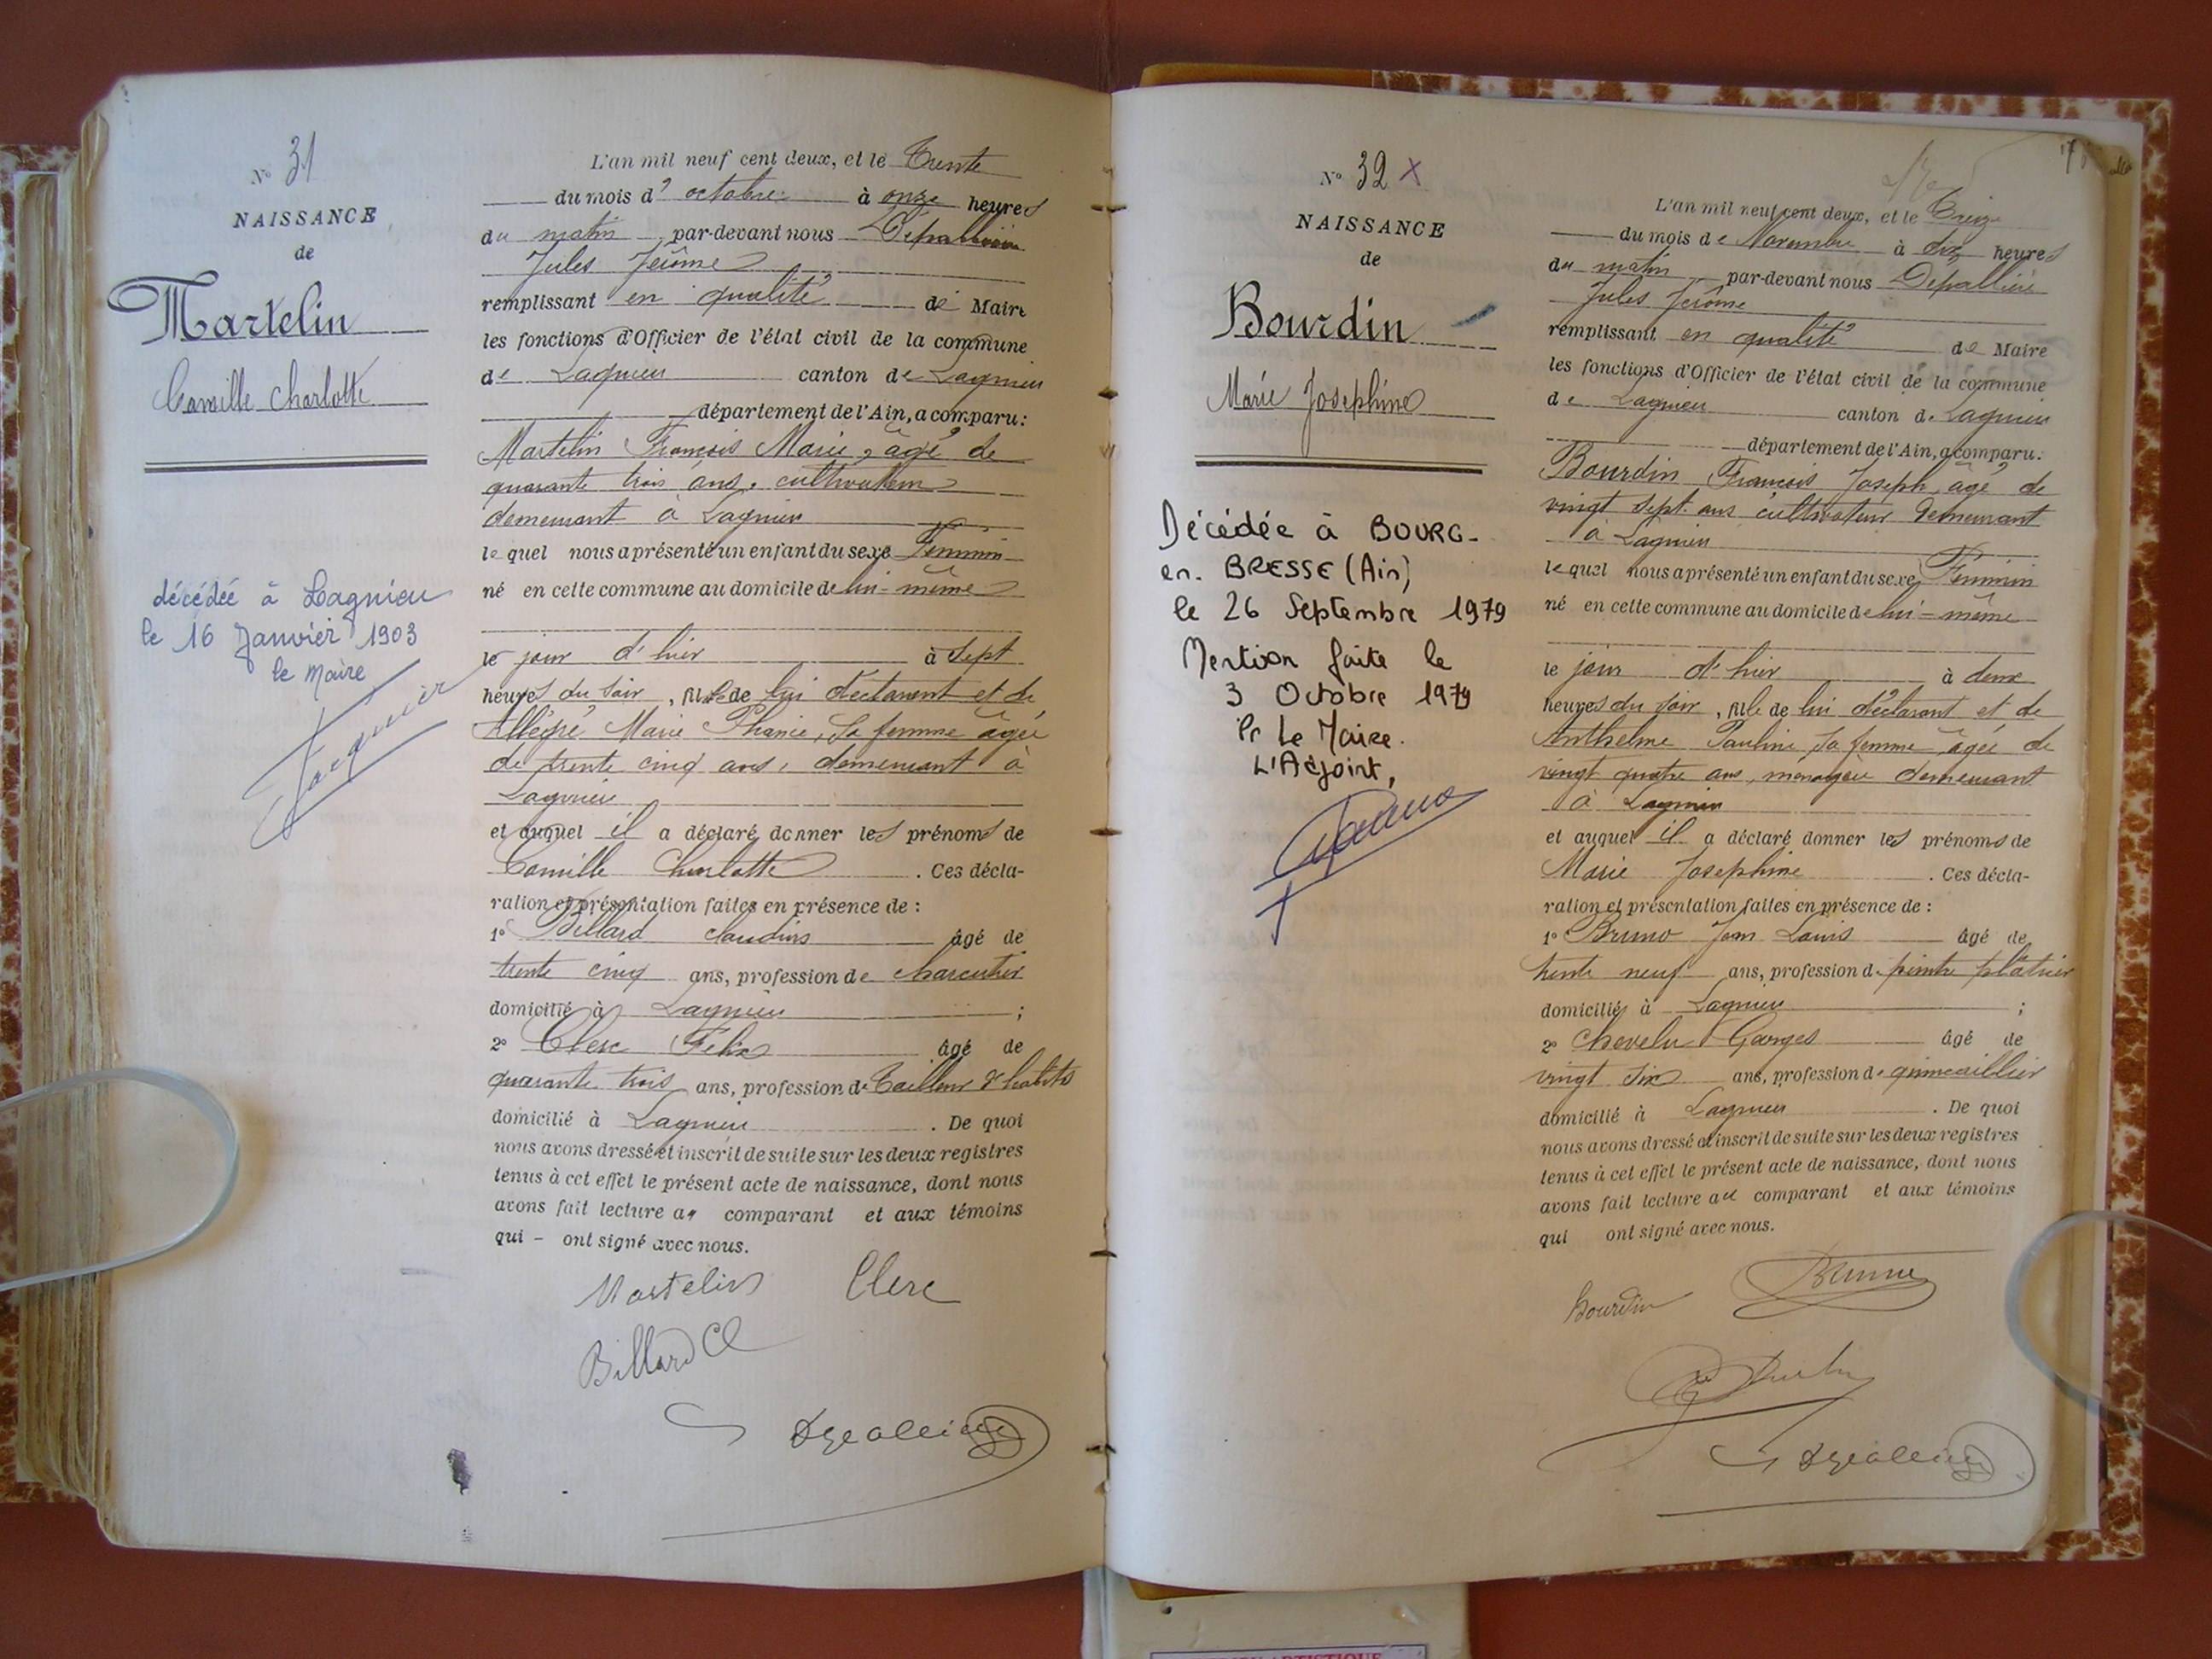 N° 31
NAISSANCE
de
Martelin
Camille Charlotte
décédée à Lagnieu
le 16 Janvier 1903
le Maire
L'an mil neuf cent deux, et le Trente
du mois d' octobre à onze heures
du matin par-devant nous Depallière
Jules Jérôme
remplissant en qualité de Maire
les fonctions d'Officier de l'état civil de la commune
de Lagnieu canton de Lagnieu
département de l'Ain, a comparu:
Martelin François Marie, âgé de
quarante trois ans, cultivateur
demeurant à Lagnieu
lequel nous a présenté un enfant du sexe Féminin
né en cette commune au domicile de lui-même
le jour d'hier à sept
heures du soir, fille de lui déclarant et de
Marie Phanie, sa femme âgée
de trente cinq ans, demeurant à
Lagnieu
et auquel il a déclaré donner les prénoms de
Camille Charlotte. Ces décla-
ration et présentation faites en présence de :
1° Billard Claudius âgé de
trente cinq ans, profession de charcutier
domicilié à Lagnieu ;
2° Clerc Félix âgé de
quarante trois ans, profession de Tailleur d'habits
domicilié à Lagnieu. De quoi
nous avons dressé et inscrit de suite sur les deux registres
tenus à cet effet le présent acte de naissance, dont nous
avons fait lecture au comparant et aux témoins
qui - ont signé avec nous.
Martelin Clerc
Billard Cl
N° 32 X
NAISSANCE
de
Bourdin
Marie Josephine
Décédée à BOURG-
en-BRESSE (Ain)
le 26 Septembre 1979
Mention faite le
3 Octobre 1979
Pr Le Maire.
L'Adjoint,
L'an mil neuf cent deux, et le Treize
du mois de Novembre à dix heures
du matin par-devant nous Depallière
Jules Jérôme
remplissant en qualité de Maire
les fonctions d'Officier de l'état civil de la commune
de Lagnieu canton de Lagnieu
département de l'Ain, a comparu:
Bourdin François Joseph âgé de
vingt sept ans cultivateur demeurant
à Lagnieu
lequel nous a présenté un enfant du sexe Féminin
né en cette commune au domicile de lui-même
le jour d'hier à deux
heures du soir, fille de lui déclarant et de
Anthelme Pauline sa femme âgée de
vingt quatre ans, ménagère demeurant
à Lagnieu
et auquel il a déclaré donner les prénoms de
Marie Josephine. Ces décla-
ration et présentation faites en présence de :
1° Bruno Jean Louis âgé de
trente neuf ans, profession de peintre plâtrier
domicilié à Lagnieu ;
2° Chevelu Georges âgé de
vingt six ans, profession de quincaillier
domicilié à Lagnieu. De quoi
nous avons dressé et inscrit de suite sur les deux registres
tenus à cet effet le présent acte de naissance, dont nous
avons fait lecture au comparant et aux témoins
qui ont signé avec nous.
Bourdin Bruno